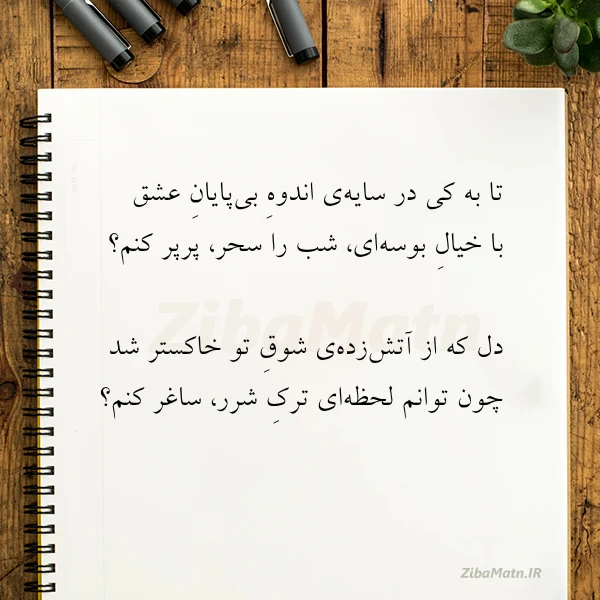 تا به کی در سایه‌ی اندوهِ بی‌پایانِ عشق
با خیالِ بوسه‌ای، شب را سحر، پرپر کنم؟
دل که از آتش‌زده‌ی شوقِ تو خاکستر شد
چون توانم لحظه‌ای ترکِ شرر، ساغر کنم؟
ZibaMatn
ZibaMatn.IR